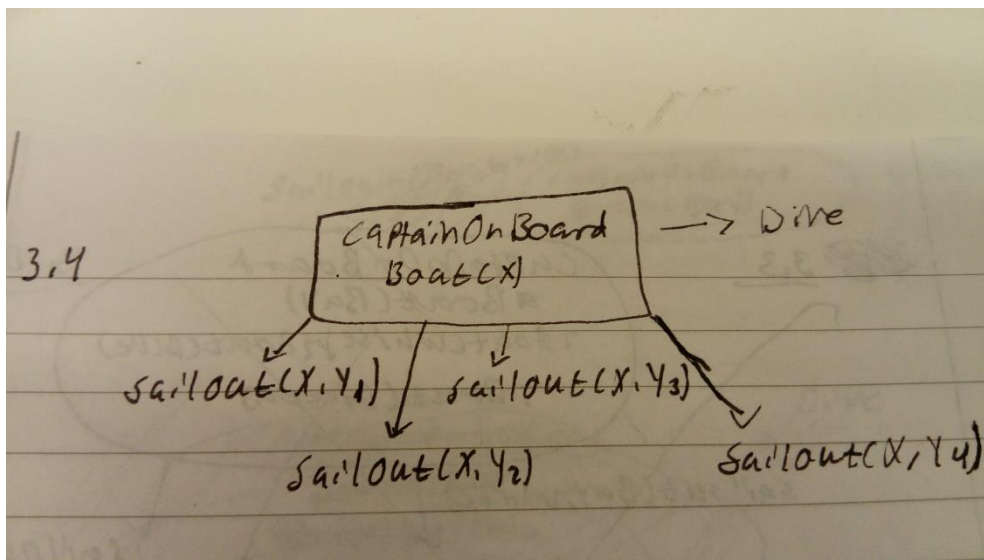 3.4
CaptainOnBoard
Boat(X)
→ Dive
sailout(X,Y1)
sailout(X,Y3)
sailout(X,Y2)
sailout(X,Y4)